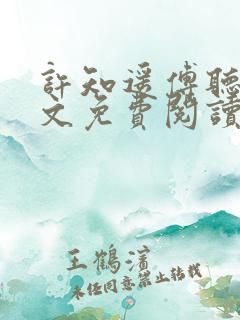 許知遙傅聽
文免費閱讀
王鶴濱
未經同意禁止轉載